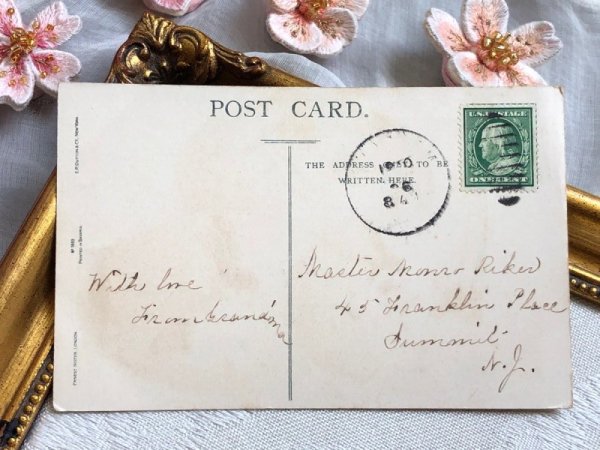 POST CARD.
THE ADDRESS ONLY TO BE
WRITTEN HERE.
U.S. POSTAGE
ONE CENT
With love
From Grandma
Master Monro Riker
45 Franklin Place
Summit
N.J.
E.P. DUTTON & CO., NEW YORK.
PRINTED IN BAVARIA
ERNEST NISTER, LONDON.